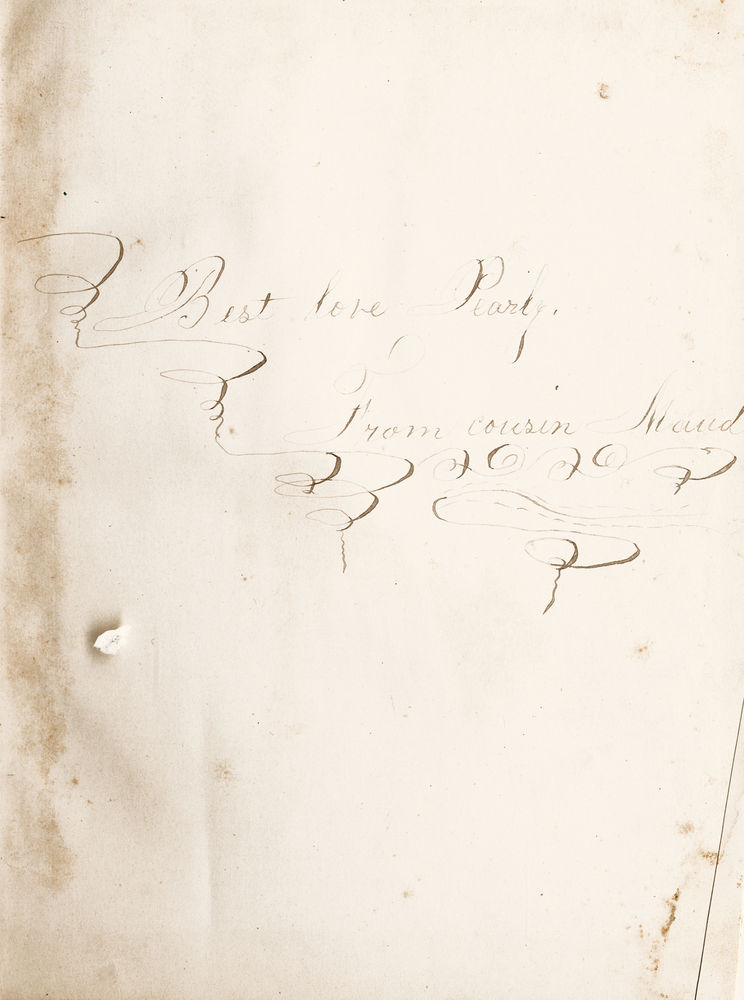 Best love Pearly.
From cousin Maud